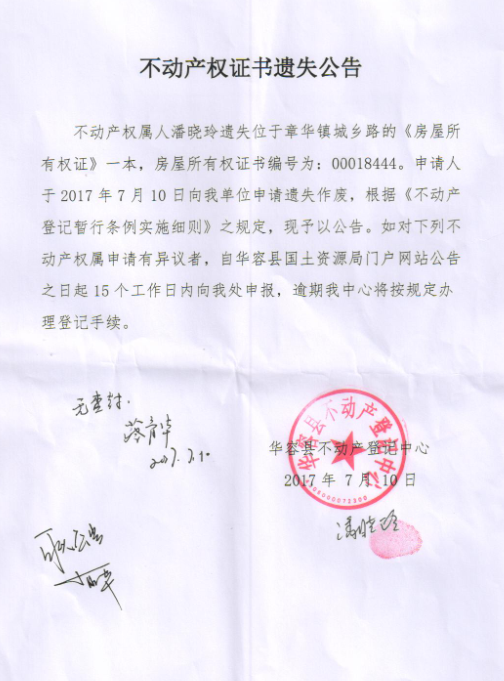 不动产权证书遗失公告
不动产权属人潘晓玲遗失位于章华镇城乡路的《房屋所
有权证》一本，房屋所有权证书编号为：00018444。申请人
于 2017 年 7 月 10 日向我单位申请遗失作废，根据《不动产
登记暂行条例实施细则》之规定，现予以公告。如对下列不
动产权属申请有异议者，自华容县国土资源局门户网站公告
之日起 15 个工作日内向我处申报，逾期我中心将按规定办
理登记手续。
无查封.
2017.7.10
华容县不动产登记中心
华容县不动产登记中心
2017 年 7 月 10 日
潘晓玲